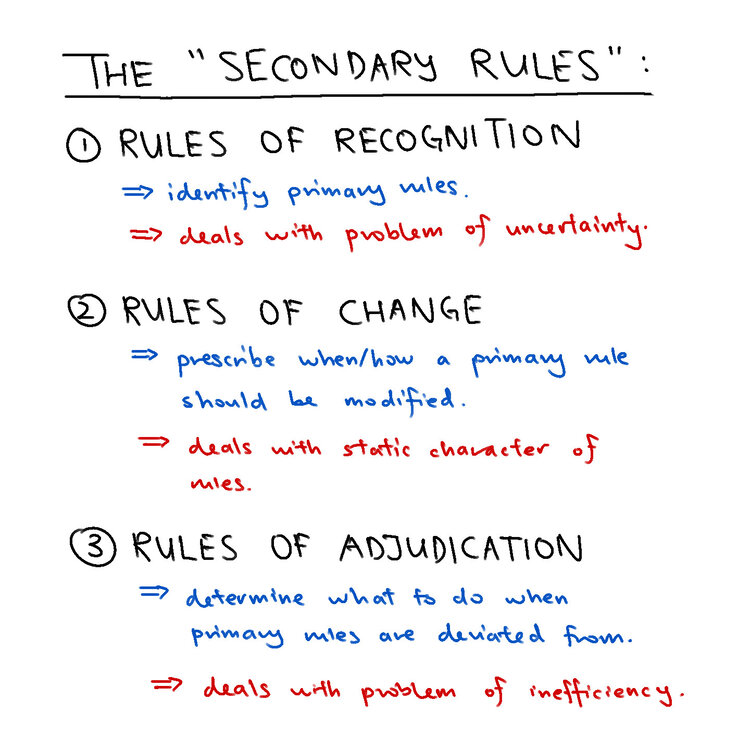 THE "SECONDARY RULES":
① RULES OF RECOGNITION
⇒ identify primary rules.
⇒ deals with problem of uncertainty.
② RULES OF CHANGE
⇒ prescribe when/how a primary rule
should be modified.
⇒ deals with static character of
rules.
③ RULES OF ADJUDICATION
⇒ determine what to do when
primary rules are deviated from.
⇒ deals with problem of inefficiency.